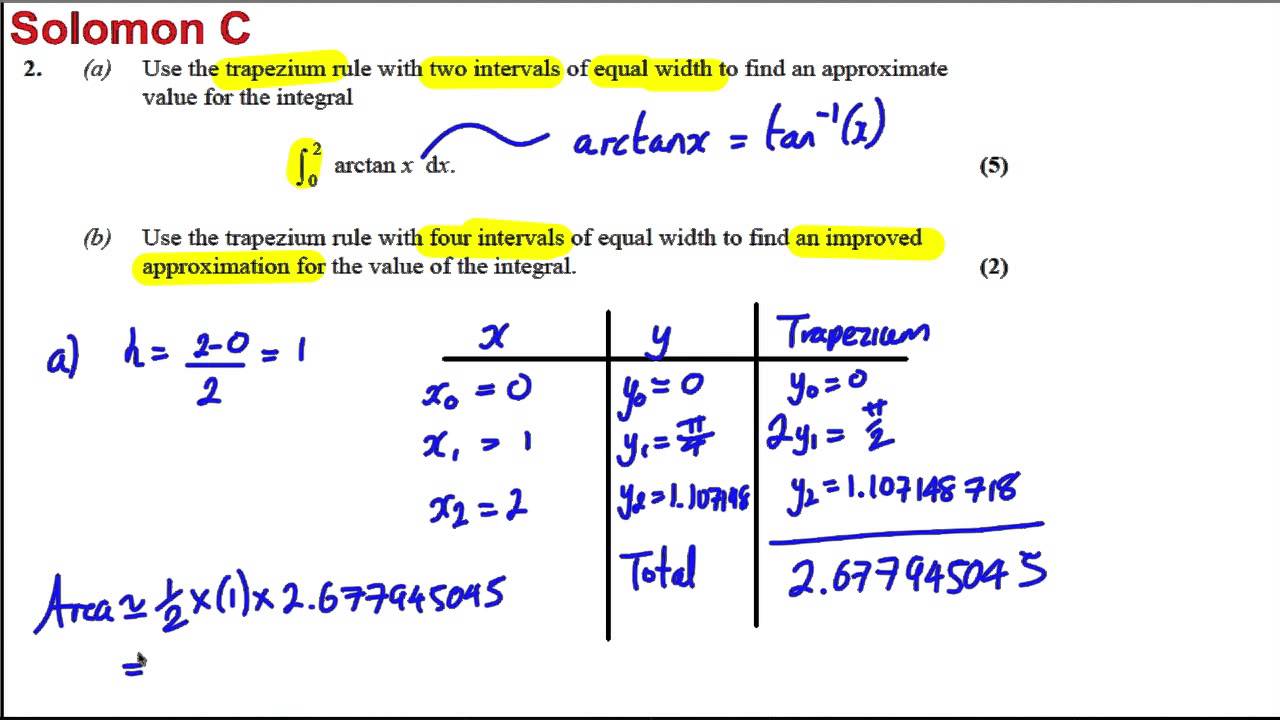 Solomon C
2. (a) Use the trapezium rule with two intervals of equal width to find an approximate
value for the integral
∫₀² arctan x dx. (5)
arctanx = tan⁻¹(x)
(b) Use the trapezium rule with four intervals of equal width to find an improved
approximation for the value of the integral. (2)
a) h = (2-0)/2 = 1
x y Trapezium
x₀ = 0 y₀ = 0 y₀ = 0
x₁ = 1 y₁ = π/4 2y₁ = π/2
x₂ = 2 y₂ = 1.107148 y₂ = 1.107148718
Total 2.677945045
Area ≃ 1/2 × (1) × 2.677945045
=